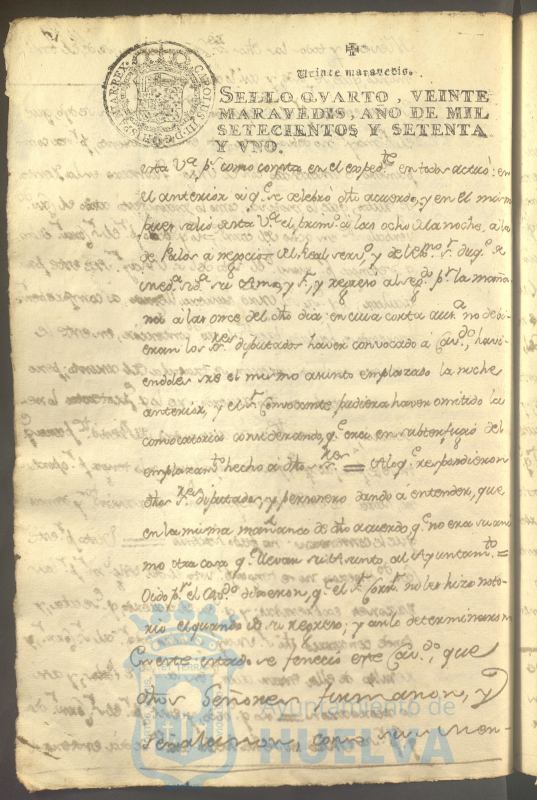 CAROLUS III D G HISPANIAR REX
Veinte maravedis.
SELLO QVARTO, VEINTE
MARAVEDIS, AÑO DE MIL
SETECIENTOS Y SETENTA
Y VNO.
esta V.ª p.r como consta en el exped.te en todos actuó: en
el anterior a q.e se celebró dho acuerdo, y en el mism
salio desta V.ª el a las ocho de la noche, a la
de Palos a negocio del Real serv.o y de
su Amo, y S.r, y regreso al seg.do p.r la maña
na a las once del dho dia en cuia corta no debi-
eran los S.res diputados haver convocado a Cav.do, havi-
endoles sre el mismo asunto emplazado la noche
anterior, y el S.r Convocante pudiera haver omitido la
convocatoria considerando, q.e era en subterfugio del
emplazam.to hecho a dhos S.res = A lo q.e respondieron
dhos S.res diputados, y personero dando a entender, que
en la misma mañana de dho acuerdo q.e no era su ani
mo otra cosa q.e llevar su Asunto al Ayuntam.to =
Oido p.r el Cav.do dixeron, q.e el S.r Corr.r no les hizo noto-
rio el quando de su regreso; y asi lo determinaron
En este estado se feneció este Cav.do, que
dhos Señores firmaron, y
señalaron, como
Ayuntamiento de
HUELVA